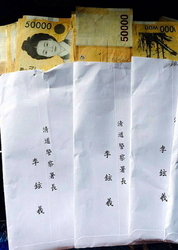 50000
50000
清道警察署長
李鉉羲
清道警察署長
李鉉羲
清道警察署長
李鉉羲